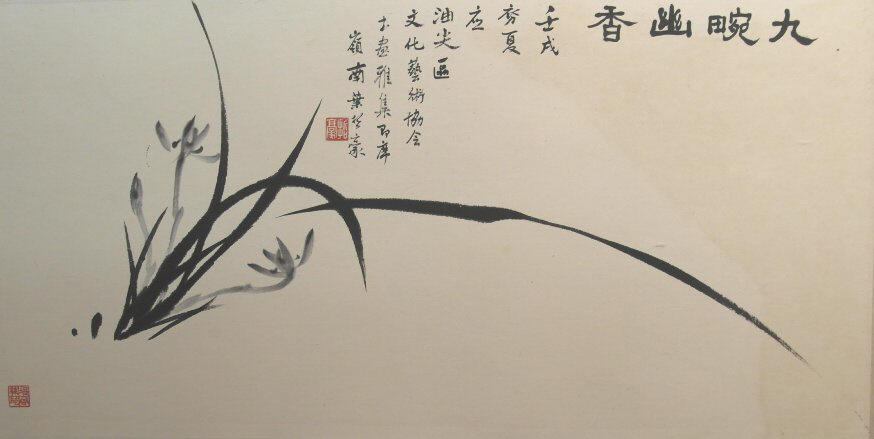 九畹幽香
壬戌
夯夏
应
油尖區
文化藝術協会
書畫雅集即席
嶺南葉哲豪